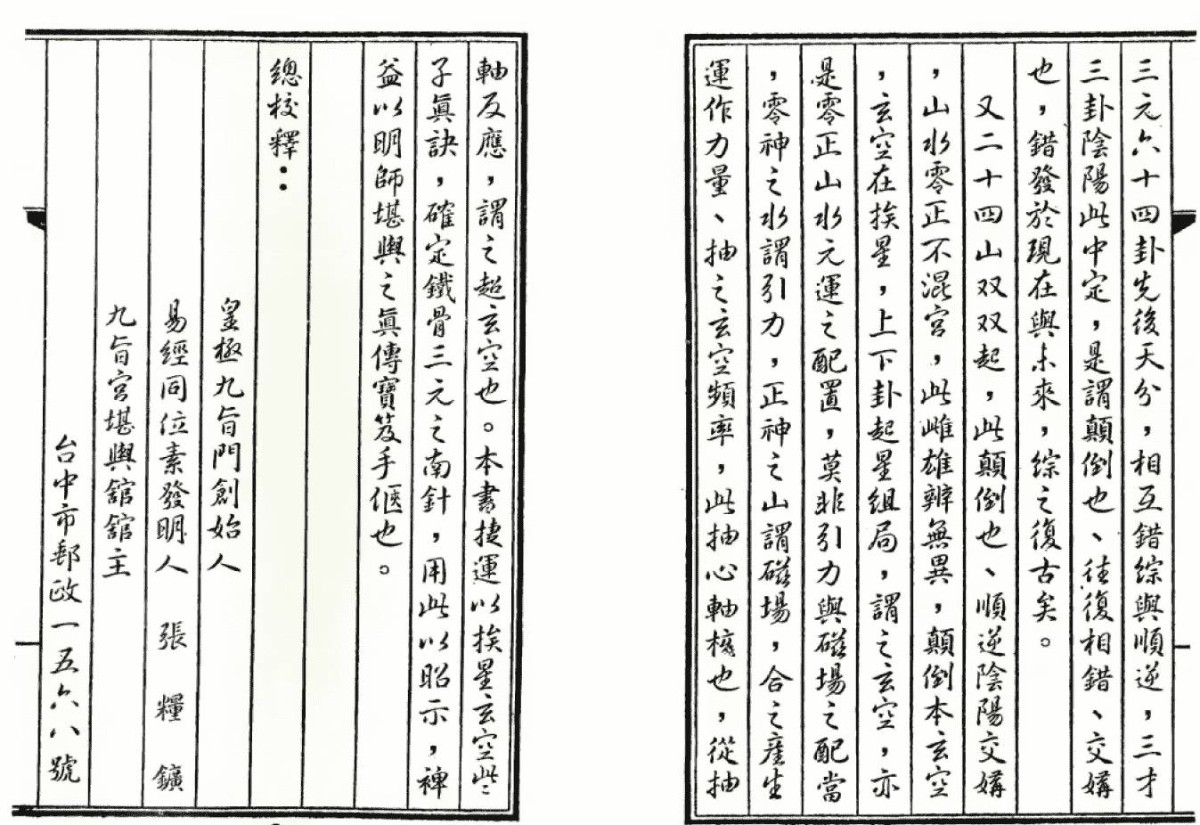 三元六十四卦先後天分，相互錯綜與順逆，三才
三卦陰陽此中定，是謂顛倒也、往復相錯、交媾
也，錯發於現在與未來，綜之復古矣。
又二十四山双双起，此顛倒也、順逆陰陽交媾
，山水零正不混宮，此雌雄辨無異，顛倒本玄空
，玄空在挨星，上下卦起星組局，謂之玄空，亦
是零正山水元運之配置，莫非引力與磁場之配當
，零神之水謂引力，正神之山謂磁場，合之產生
運作力量、抽之玄空頻率，此抽心軸樞也，從抽
軸反應，謂之超玄空也。本書捷運以挨星玄空些
子真訣，確定鐵骨三元之南針，用此以昭示，裨
益以明師堪輿之真傳寶笈手傴也。
總校釋：
皇極九旨門創始人
易經同位素發明人　張　糧　鑛
九旨宮堪輿舘舘主
台中市郵政一五六八號